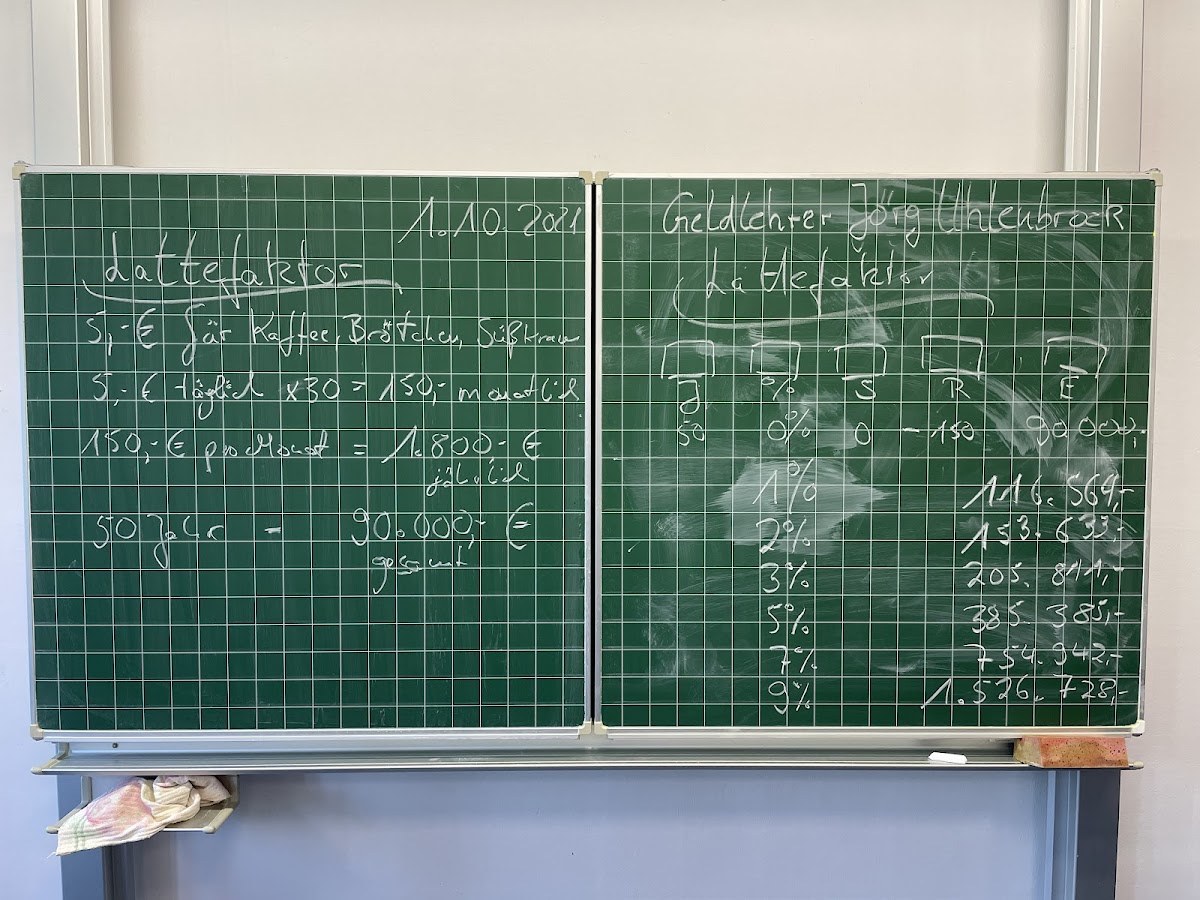 1.10.2021
Lattefaktor
5,-€ für Kaffee, Brötchen, Süßkram
5,-€ täglich x30 = 150,- monatlich
150,-€ pro Monat = 1.800,- €
jährlich
50 Jahr - 90.000,- €
gesamt
Geldlehrer Jörg Uhlenbrock
Lattefaktor
J % S R E
50 0% 0 -150 90 000,-
1% 116.564,-
2% 153.633,-
3% 205.811,-
5% 385.385,-
7% 754.942,-
9% 1.526.728,-